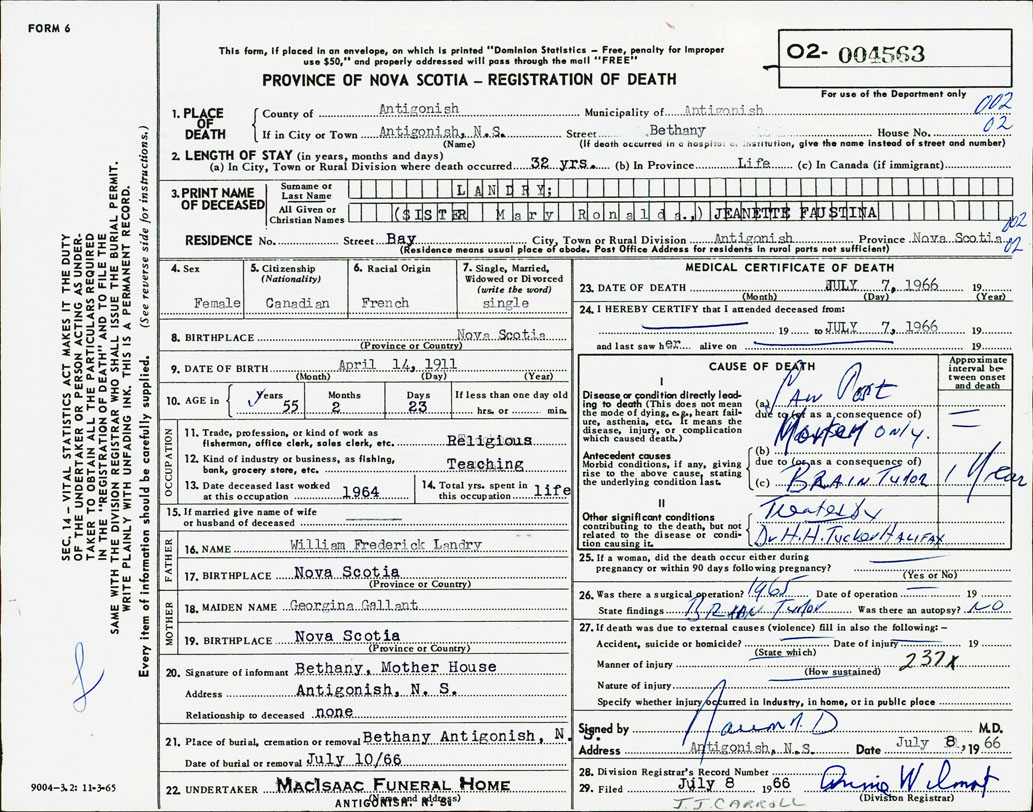 FORM 6
This form, if placed in an envelope, on which is printed "Dominion Statistics – Free, penalty for improper
use $50," and properly addressed will pass through the mail "FREE"
PROVINCE OF NOVA SCOTIA – REGISTRATION OF DEATH
02- 004563
For use of the Department only
002
02
1. PLACE OF DEATH
County of Antigonish Municipality of Antigonish
If in City or Town Antigonish, N.S. Street Bethany House No.
(Name) (If death occurred in a hospital or institution, give the name instead of street and number)
2. LENGTH OF STAY (in years, months and days)
(a) In City, Town or Rural Division where death occurred 32 yrs. (b) In Province Life (c) In Canada (if immigrant)
3. PRINT NAME OF DECEASED
Surname or Last Name LANDRY;
All Given or Christian Names (SISTER Mary Ronalda.,) JEANETTE FAUSTINA
002
02
RESIDENCE No. Street Bay City, Town or Rural Division Antigonish Province Nova Scotia
(Residence means usual place of abode. Post Office Address for residents in rural parts not sufficient)
SEC, 14 – VITAL STATISTICS ACT MAKES IT THE DUTY
OF THE UNDERTAKER OR PERSON ACTING AS UNDER-
TAKER TO OBTAIN ALL THE PARTICULARS REQUIRED
IN THE "REGISTRATION OF DEATH" AND TO FILE THE
SAME WITH THE DIVISION REGISTRAR WHO SHALL ISSUE THE BURIAL PERMIT.
WRITE PLAINLY WITH UNFADING INK. THIS IS A PERMANENT RECORD.
Every item of information should be carefully supplied. (See reverse side for instructions.)
4. Sex Female
5. Citizenship (Nationality) Canadian
6. Racial Origin French
7. Single, Married, Widowed or Divorced (write the word) single
8. BIRTHPLACE Nova Scotia
(Province or Country)
9. DATE OF BIRTH April 14, 1911
(Month) (Day) (Year)
10. AGE in Years 55 Months 2 Days 23 If less than one day old hrs. or min.
OCCUPATION
11. Trade, profession, or kind of work as
fisherman, office clerk, sales clerk, etc. Religious
12. Kind of industry or business, as fishing,
bank, grocery store, etc. Teaching
13. Date deceased last worked at this occupation 1964
14. Total yrs. spent in this occupation life
15. If married give name of wife
or husband of deceased
FATHER
16. NAME William Frederick Landry
17. BIRTHPLACE Nova Scotia
(Province or Country)
MOTHER
18. MAIDEN NAME Georgina Gallant
19. BIRTHPLACE Nova Scotia
(Province or Country)
20. Signature of informant Bethany, Mother House
Address Antigonish, N. S.
Relationship to deceased none
21. Place of burial, cremation or removal Bethany Antigonish, N. S.
Date of burial or removal July 10/66
22. UNDERTAKER MACISAAC FUNERAL HOME
(Name and address)
ANTIGONISH, N. S.
9004-3.2: 11-3-65
MEDICAL CERTIFICATE OF DEATH
23. DATE OF DEATH JULY 7, 1966 19
(Month) (Day) (Year)
24. I HEREBY CERTIFY that I attended deceased from:
19 to JULY 7, 1966 19
and last saw her alive on 19
CAUSE OF DEATH
Approximate interval between onset and death
I
Disease or condition directly leading to death (This does not mean the mode of dying, e.g., heart failure, asthenia, etc. It means the disease, injury, or complication which caused death.)
(a) Saw Post
due to (or as a consequence of)
Mortem only.
Antecedent causes
Morbid conditions, if any, giving rise to the above cause, stating the underlying condition last.
(b)
due to (or as a consequence of)
(c) BRAIN TUMOR 1 Year
II
Other significant conditions
contributing to the death, but not related to the disease or condition causing it.
Treated by
Dr H.H. Tucker HALIFAX
25. If a woman, did the death occur either during
pregnancy or within 90 days following pregnancy?
(Yes or No)
26. Was there a surgical operation? 1965 Date of operation 19
State findings BRAIN TUMOR Was there an autopsy? NO
27. If death was due to external causes (violence) fill in also the following:–
Accident, suicide or homicide? Date of injury 19
(State which)
Manner of injury 237X
(How sustained)
Nature of injury
Specify whether injury occurred in industry, in home, or in public place
Signed by M.D. M.D.
Address Antigonish, N.S. Date July 8, 19 66
28. Division Registrar's Record Number
29. Filed July 8 19 66 Annie Wilmot
(Division Registrar)
J.J. CARROLL